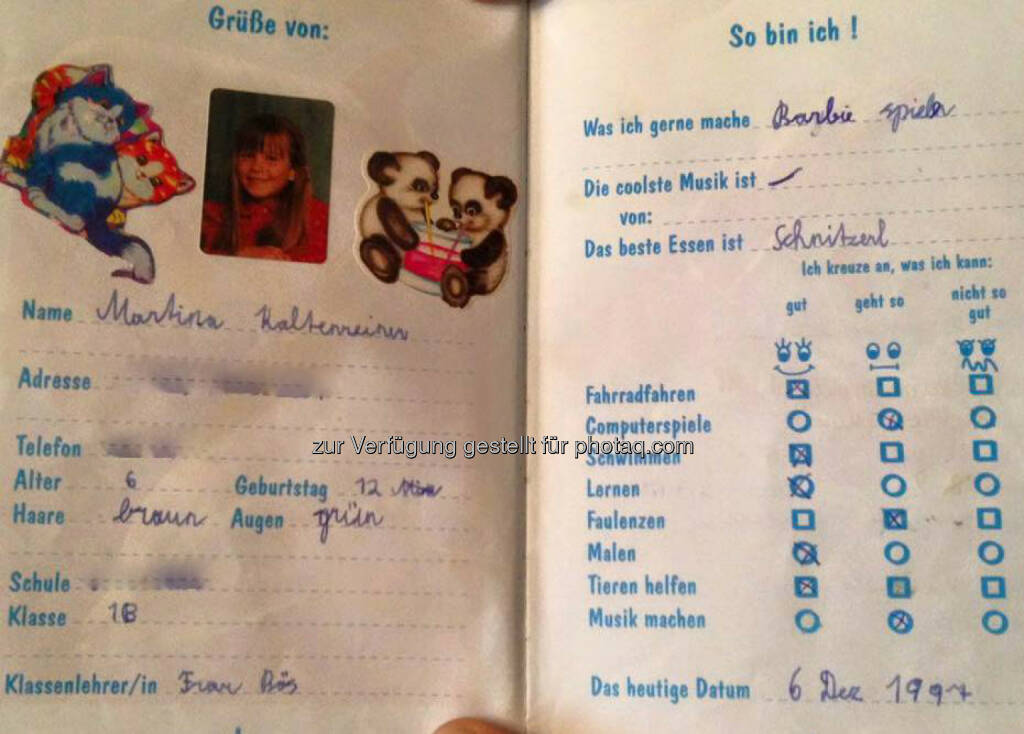 Grüße von:
Name Martina Kaltenreiner
Adresse
Telefon
Alter 6 Geburtstag 12 März
Haare braun Augen grün
Schule
Klasse 1B
Klassenlehrer/in Frau Bös
So bin ich !
Was ich gerne mache Barbie spielen
Die coolste Musik ist
von:
Das beste Essen ist Schnitzerl
Ich kreuze an, was ich kann:
gut geht so nicht so
gut
Fahrradfahren
Computerspiele
zur Verfügung gestellt für photaq.com
Schwimmen
Lernen
Faulenzen
Malen
Tieren helfen
Musik machen
Das heutige Datum 6 Dez 1997